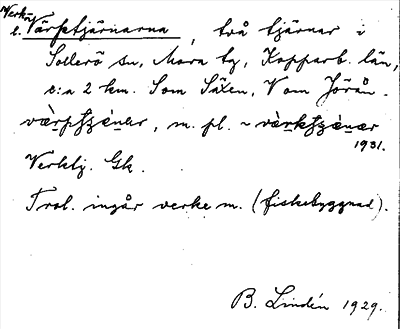 Verk-
l. Värptjärnarna, två tjärnar i
Sollerö sn, Mora tg, Kopparb. län,
c:a 2 km. Som Säxen, V om Jörån.
m. pl. ~
1931.
Verklj. Gk.
Trol. ingår verke m. (fiskebyggnad).
B. Lindén 1929.